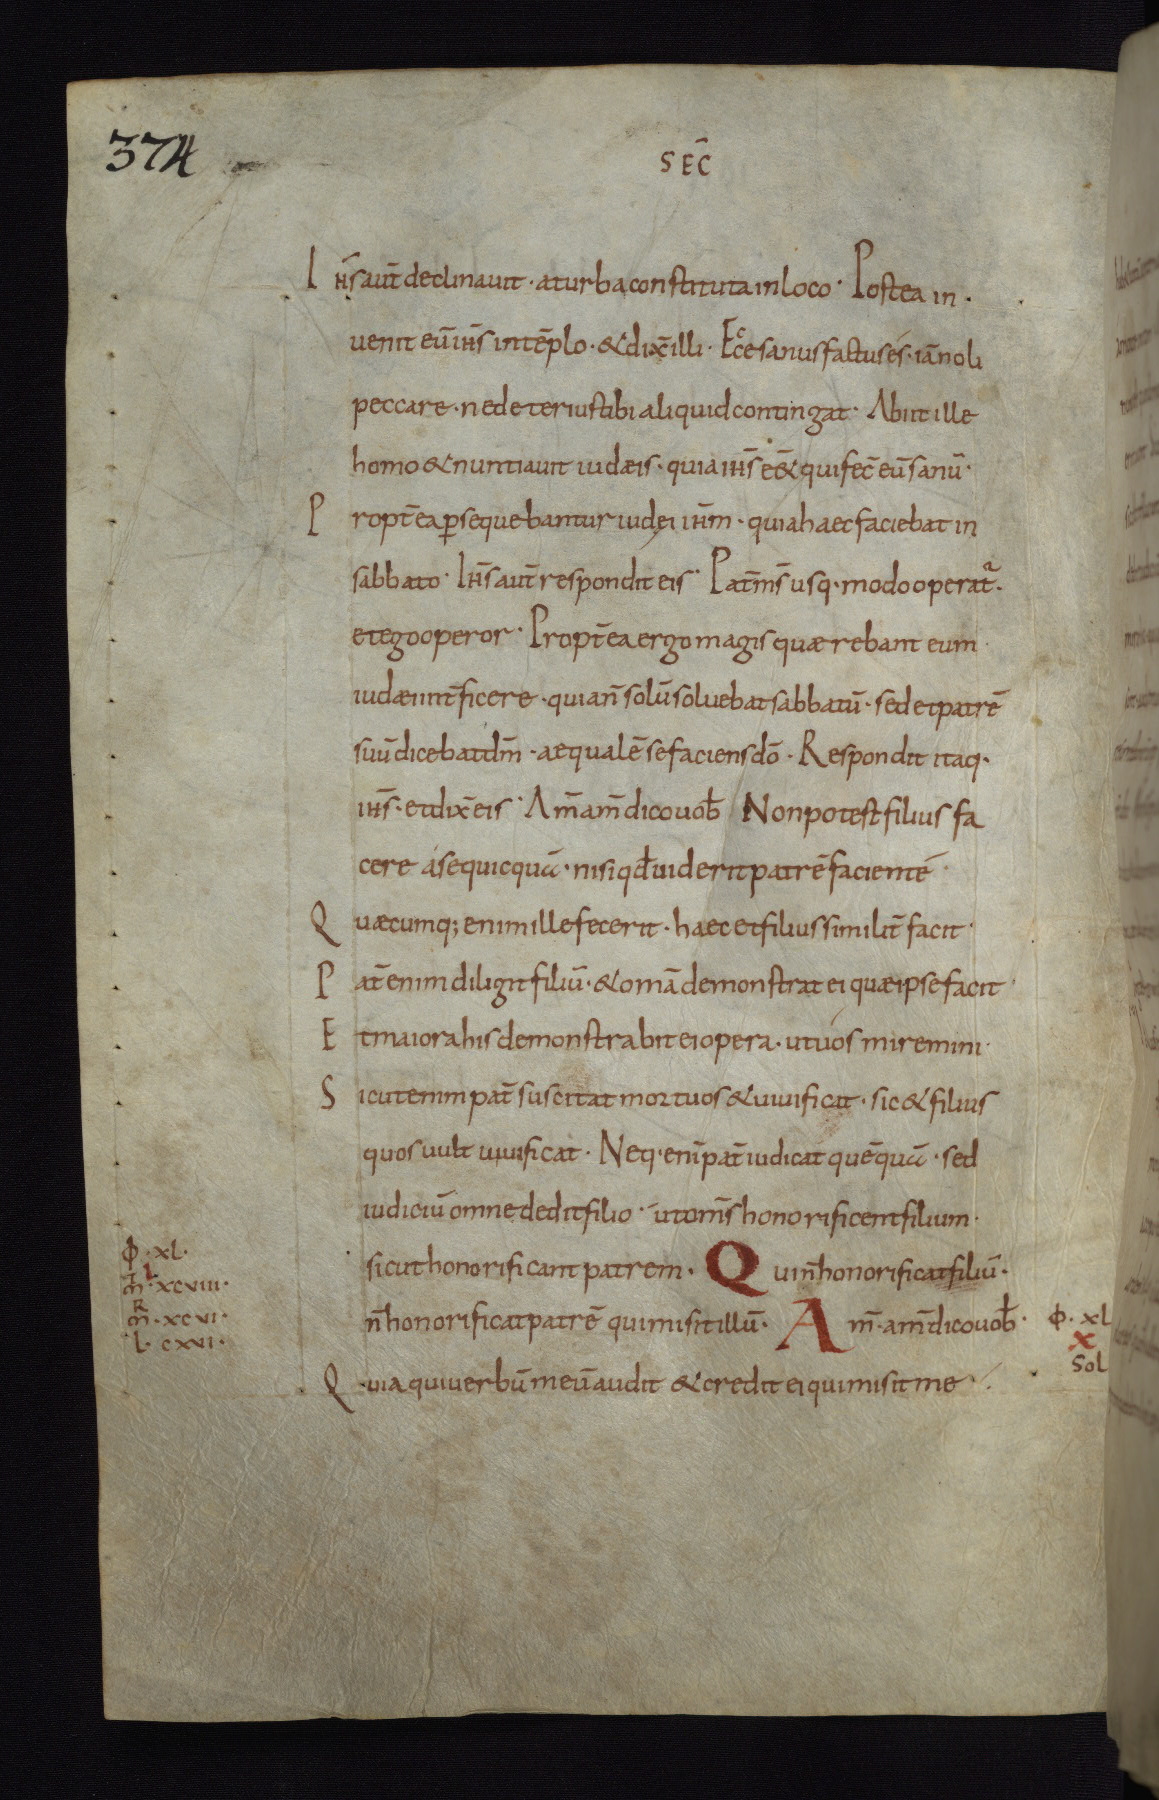 374
SEC̄
I H̄S aut̄ declinauit · a turba constituta in loco · Postea in ·
uenit eū ih̄s in tēplo · & dix̄ illi · Ecce sanus factus és · iā noli
peccare · ne deterius tibi aliquid contingat · Abiit ille
homo & nuntiauit iudæis · quia ih̄s eēt qui fec̄ eū sanū ·
P ropt̄ea ꝑsequebantur iudei ih̄m · quia haec faciebat in
sabbato · Ih̄s aut̄ respondit eis · Pat̄ m̄s usq · modo operat̄ ·
et ego operor · Propt̄ea ergo magis quærebant eum
iudæi int̄ficere · quia n̄ solū soluebat sabbatū · sed et patrē
suū dicebat dm̄ · aequalē se faciens dō · Respondit itaq ·
ih̄s · et dix̄ eis · Am̄ am̄ dico uob̄ Non potest filius fa
cere á se quicquā · nisi qđ uiderit patrē facientē
Q uæcumq; enim ille fecerit · haec et filius similit̄ facit ·
P at̄ enim diligit filiū · & om̄a demonstrat ei quæ ipse facit ·
E t maiora his demonstrabit ei opera · ut uós miremini ·
S icut enim pat̄ suscitat mortuos & uiuificat · sic & filius
quos uult uiuificat · Neq · eni̅ pat̄ iudicat quēquā · sed
iudiciū omne dedit filio · út om̄s honorificent filium ·
sicut honorificant patrem · Qui n̄ honorificat filiū ·
n̄ honorificat patrē qui misit illū · Am̄ · am̄ dico uob̄ ·
Q uia qui uerbū meū audit & credit ei qui misit me ·
φ · xl ·
m̄ · xcviii ·
m̄ · xcvi ·
L · cxxi ·
φ · xl
x
Sol